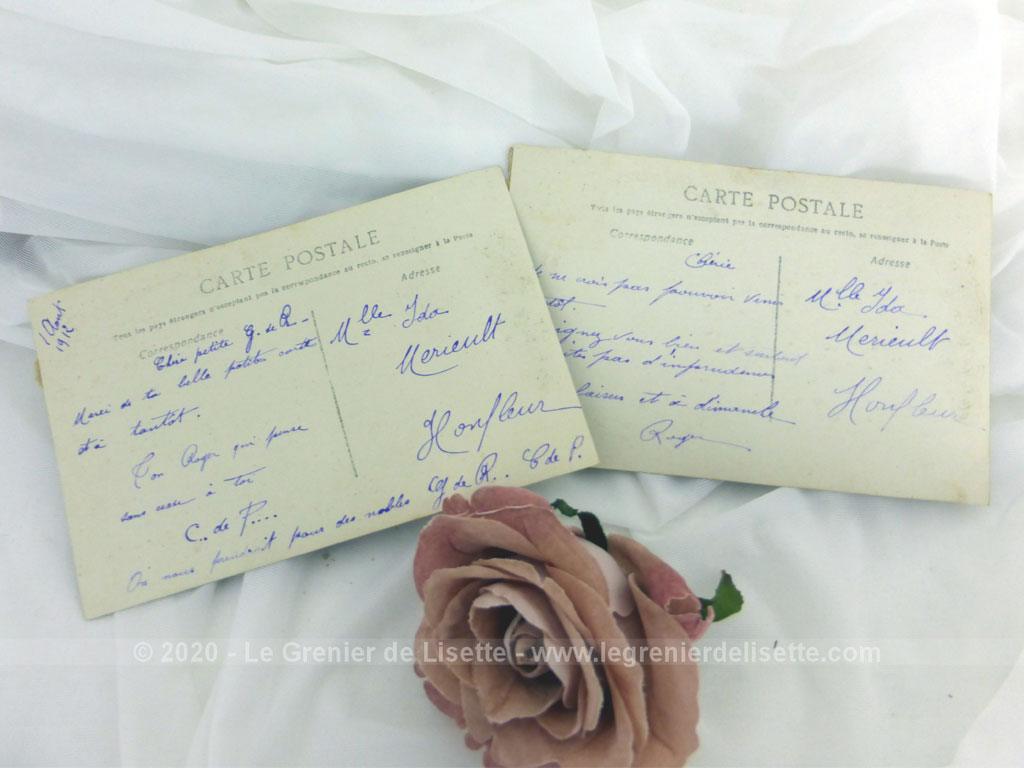 CARTE POSTALE
Tous les pays étrangers n'acceptent pas la correspondance au recto, se renseigner à la Poste
Correspondance
Adresse
1912
petite G. de R.-
Merci de ta belle petite carte
et à tantôt.
Ton Roger qui pense
sans cesse à toi
C. de P....
On nous prendrait pour des nobles G de R.. C de P.
Mlle Ida
Merieult
Honfleur
CARTE POSTALE
Tous les pays étrangers n'acceptent pas la correspondance au recto, se renseigner à la Poste
Correspondance
Adresse
Chérie
ne crois pas pouvoir venir
tôt.
ignez vous bien et surtout
pas d'imprudence
et à dimanche
Roger
Mlle Ida
Merieult
Honfleur
© 2020 - Le Grenier de Lisette - www.legrenierdelisette.com